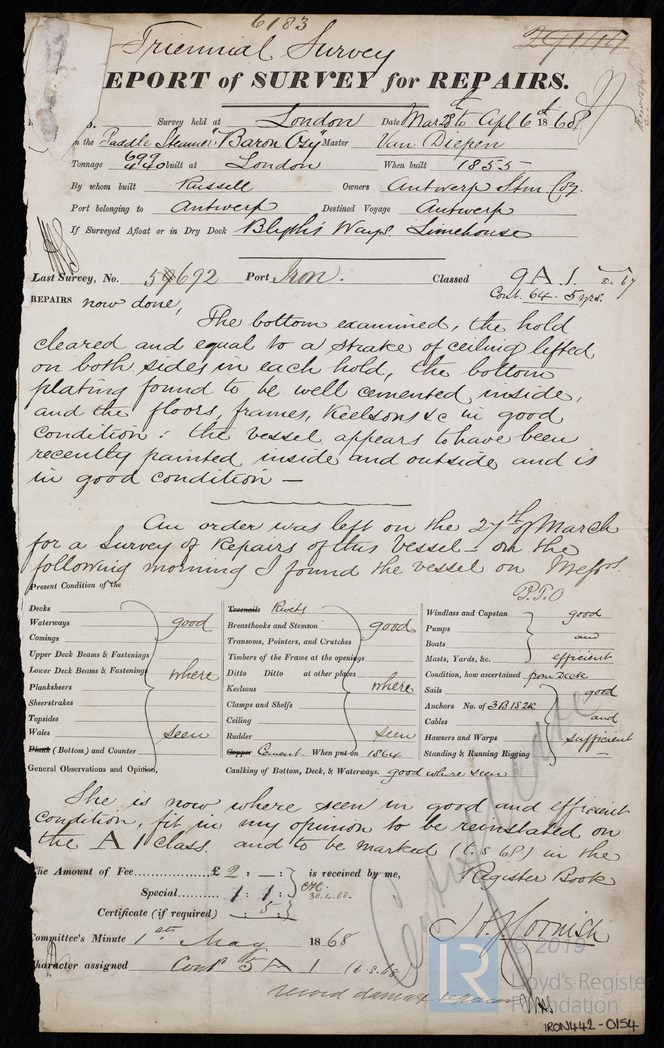 6183
Triennial Survey
EPORT of SURVEY for REPAIRS.
Survey held at London Date Mar 28th to Apl 6th 1868
the Paddle Steamer "Baron Osy" Master Van Diepen
Tonnage 699 440 built at London When built 1855
By whom built Russell Owners Antwerp Stm Coy.
Port belonging to Antwerp Destined Voyage Antwerp
If Surveyed Afloat or in Dry Dock Blyth's Ways. Limehouse
Last Survey, No. 692 Port Iron. Classed 9 A 1
Cont. 64. 5 yrs.
REPAIRS now done,
The bottom examined, the hold
cleared and equal to a strake of ceiling lifted
on both sides in each hold, the bottom
plating found to be well cemented inside,
and the floors, frames, Keelsons &c in good
condition: the vessel appears to have been
recently painted inside and outside and is
in good condition —
An order was left on the 27th of March
for a Survey of Repairs of this Vessel — on the
following morning I found the vessel on Messrs.
P.T.O
Present Condition of the
Decks
Waterways good
Comings
Upper Deck Beams & Fastenings
Lower Deck Beams & Fastenings where
Planksheers
Sheerstrakes
Topsides
Wales seen
Plank (Bottom) and Counter
Treenails Rivets
Breasthooks and Stemson good
Transoms, Pointers, and Crutches
Timbers of the Frame at the openings
Ditto Ditto at other places
Keelsons where
Clamps and Shelfs
Ceiling
Rudder seen
Copper Cement. When put on 1864
Windlass and Capstan good
Pumps
Boats and
Masts, Yards, &c. efficient
Condition, how ascertained from Deck
Sails good
Anchors No. of 3B 1S 2K
Cables and
Hawsers and Warps sufficient
Standing & Running Rigging
General Observations and Opinion, Caulking of Bottom, Deck, & Waterways. good where seen
She is now where seen in good and efficient
condition, fit in my opinion to be reinstated on
the A 1 class, and to be marked (6.5 68) in the
Register Book
The Amount of Fee £ 2 : — : is received by me,
Special 1 : 1 : 30.4.68.
Certificate (if required) . : 5 :
H. J. Cornish
Committee's Minute 1st May 1868
Character assigned Cont 5 A 1
record damage repairs
© 2019
LR
Lloyd's Register
Foundation
IRON442-0154